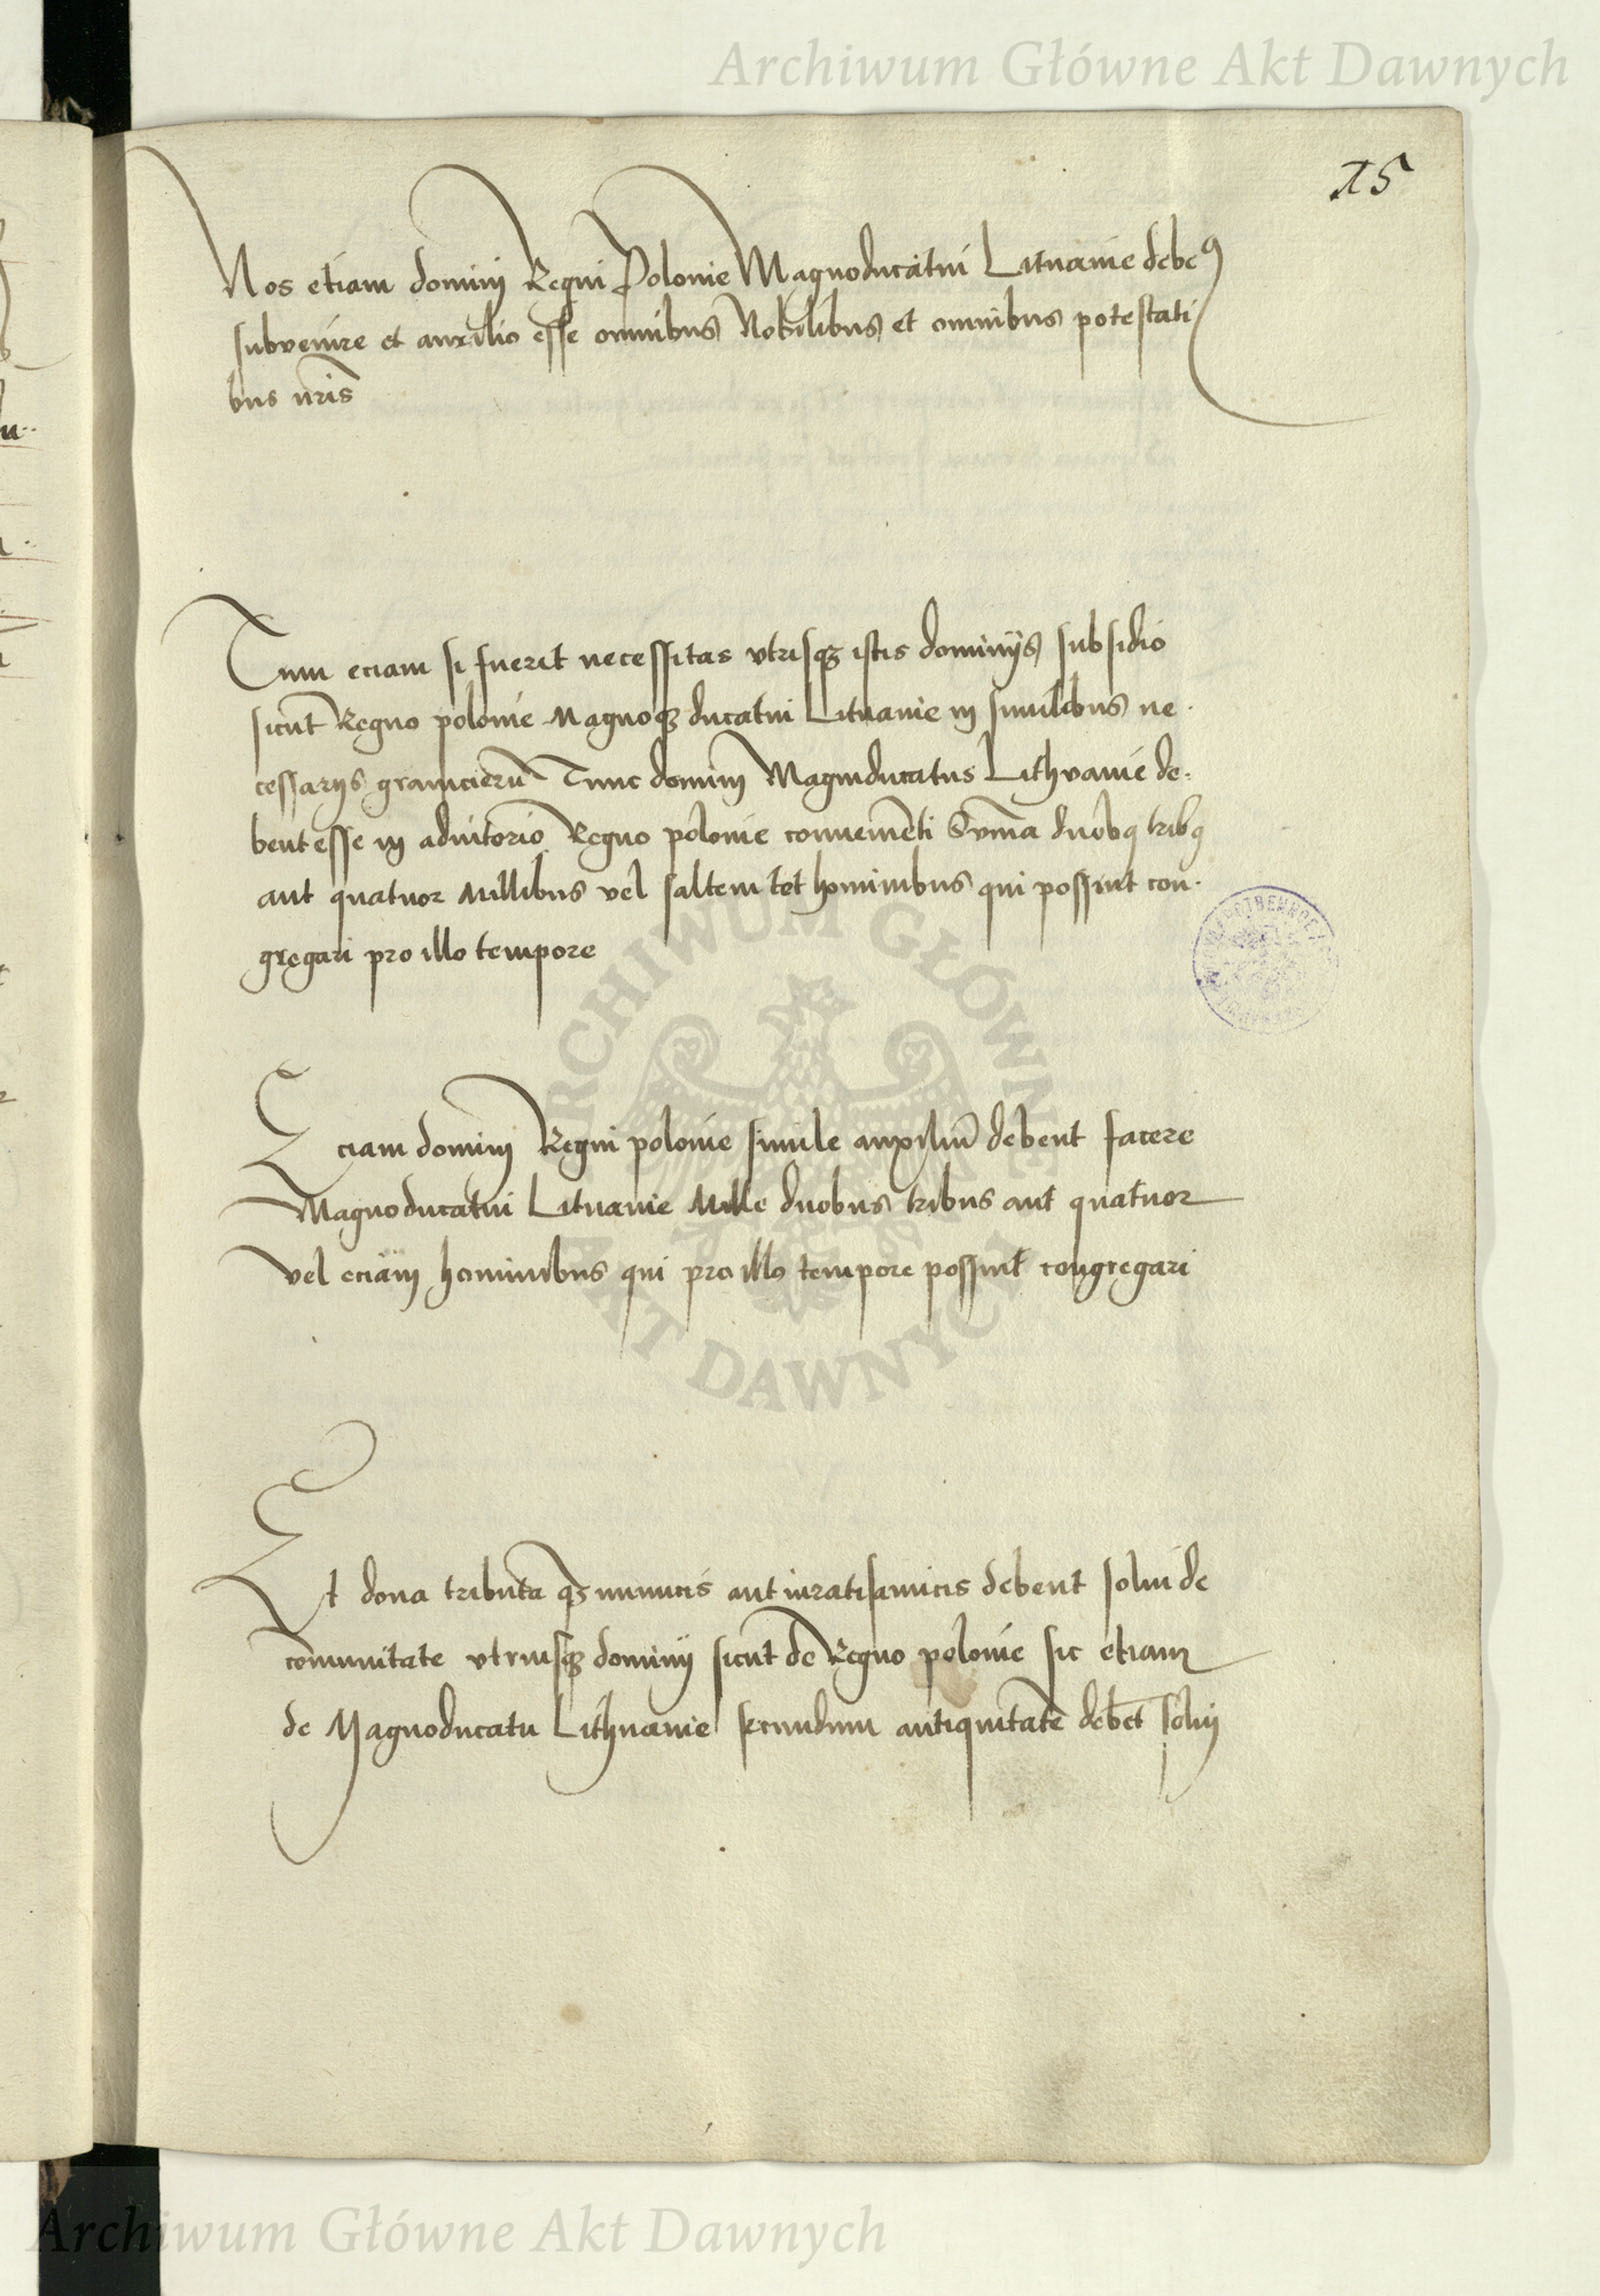 Archiwum Główne Akt Dawnych
15
Nos etiam dominy Regni Polonie Magnoducatui Lituanie debeꝰ
subvenire et auxilio esse omnibus Nobilibus et omnibus potestati
bus nr̃is
Tum eciam si fuerit necessitas vtrisqꝫ istis dominijs subsidio
sicut Regno polonie Magnoqꝫ ducatui Lituanie in similibus ne
cessarijs granicierũ Tunc dominij Magniducatus Lithvanie de
bent esse in adiutorio Regno polonie convenienti Sum̃a duobꝰ tribꝰ
aut quatuor Millibus vel saltem tot hominibus qui possint con
gregari pro illo tempore
Eciam dominij Regni polonie simile auxiliũ debent facere
Magnoducatui Lituanie Mille duobus tribus aut quatuor
vel eciam hominibus qui pro illo tempore possint congregari
Et dona tributa qꝫ inimicis aut iuratis amicis debent solui de
com̃unitate vtriusqꝫ dominij sicut de Regno polonie sic etiam
de Magnoducatu Lithuanie secundum antiquitatẽ debẽt solui
ARCHIWUM GŁÓWNE
AKT DAWNYCH
Archiwum Główne Akt Dawnych